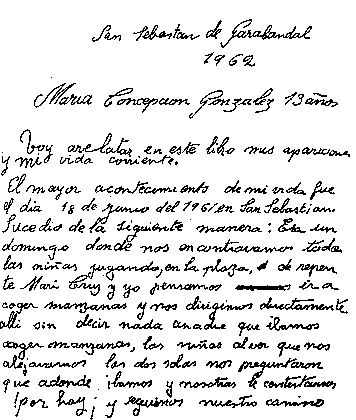 San Sebastan de Garabandal
1962
Maria Concepcion Gonzalez 13 años
Voy arelatar en este libro mis apariciones
y mi vida corriente.
El mayor acontecimiento de mi vida fue
el dia 18 de junio del 1961 en San Sebastian.
Sucedio de la siguiente manera: Era un
domingo donde nos encontravamos todas
las niñas jugando, en la plaza, de repen
te Mari Cruz y yo pensamos ir a
coger manzanas y nos dirigimos directamente
alli sin decir nada anadie que ibamos
acoger manzanas, las niñas alver que nos
alejavamos las dos solas nos preguntaron
que adonde ibamos y nosotras le contestamos
¡por hay¡ y seguimos nuestro camino